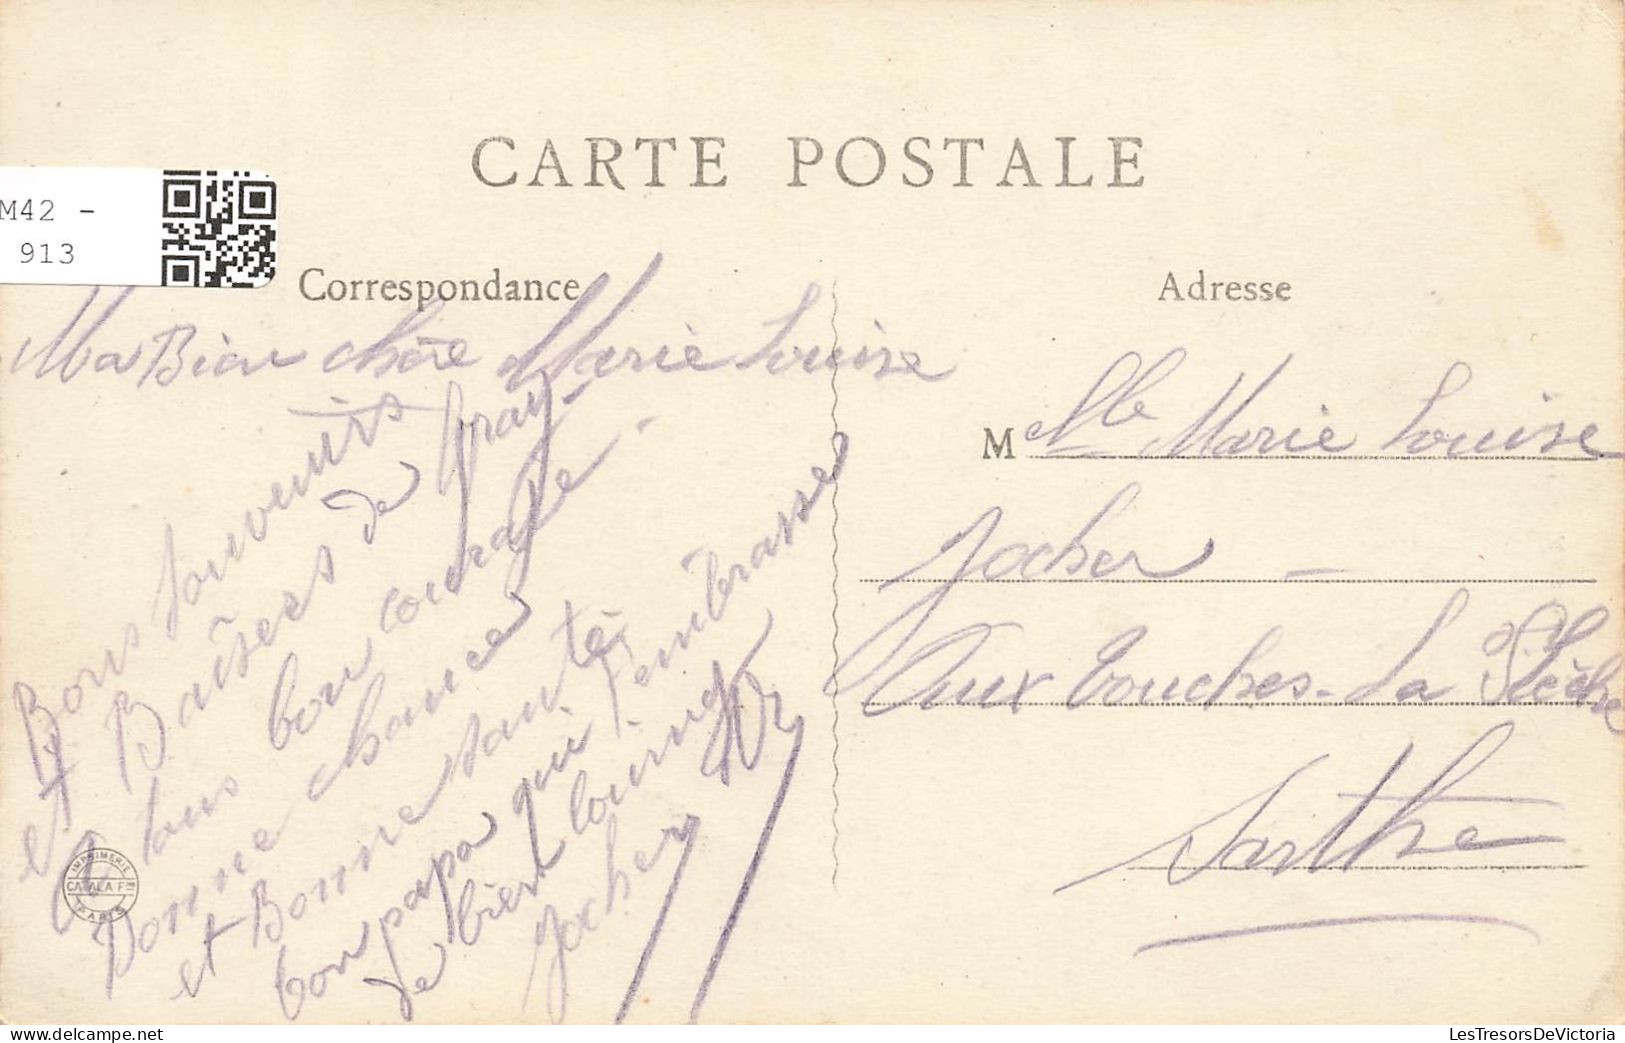 CARTE POSTALE
M42 -
913
Correspondance
Adresse
Ma Bien chère Marie Louise
Bons souvenirs
et Baisers de Gray-
A tous bon courage -
Bonne chance
et Bonne santé
bon papa qui t'embrasse
de bien loin
Jocher
Melle Marie Louise
Jocher -
Aux Touches - La Flèche
Sarthe
IMPRIMERIE
CATALA Fres
PARIS
LesTresorsDeVictoria